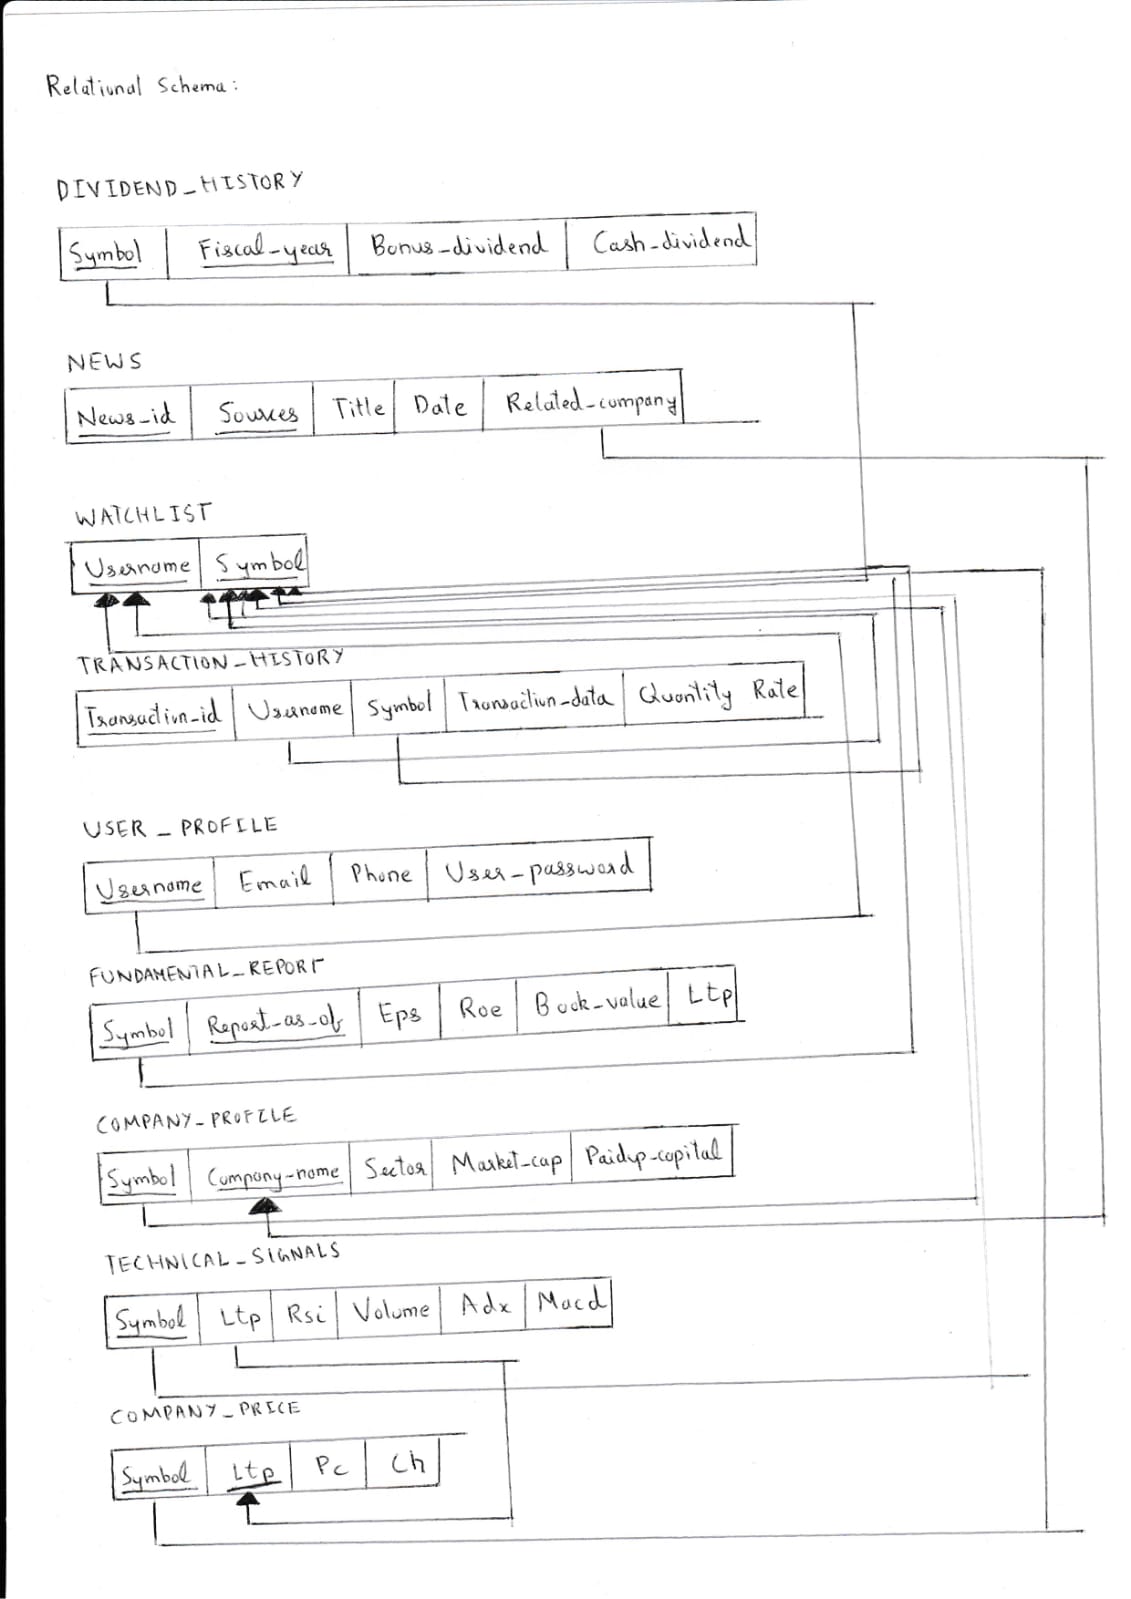 Relational Schema :
DIVIDEND_HISTORY
Symbol Fiscal-year Bonus-dividend Cash-dividend
NEWS
News-id Sources Title Date Related-company
WATCHLIST
Username Symbol
TRANSACTION_HISTORY
Transaction-id Username Symbol Transaction-data Quantity Rate
USER_PROFILE
Username Email Phone User-password
FUNDAMENTAL_REPORT
Symbol Report-as-of Eps Roe Book-value Ltp
COMPANY_PROFILE
Symbol Company-name Sector Market-cap Paidup-capital
TECHNICAL_SIGNALS
Symbol Ltp Rsi Volume Adx Macd
COMPANY_PRICE
Symbol Ltp Pc Ch